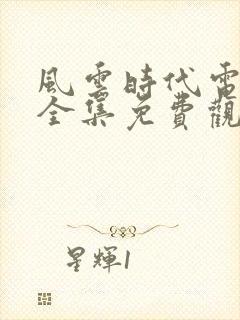 風雲時代電
全集免費觀
星輝1